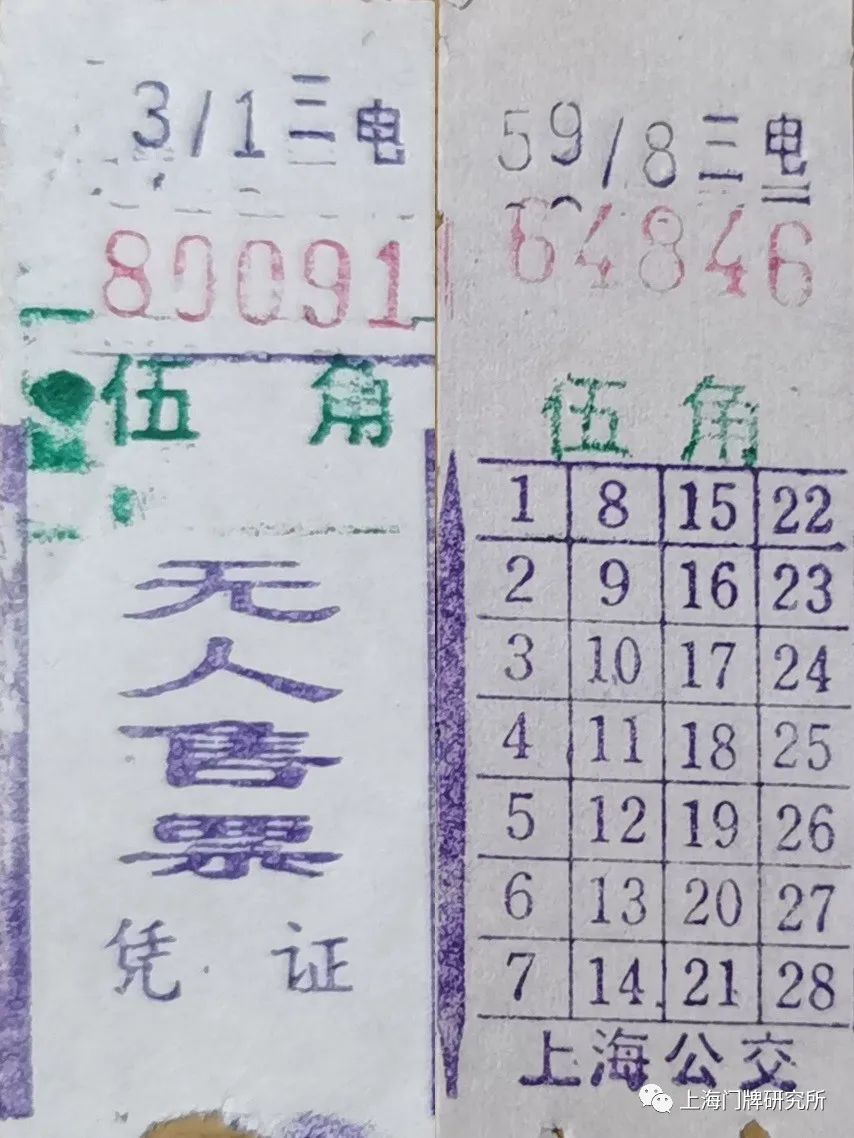 3/1三电
80091
伍角
无人售票
凭证
59/8三电
64846
伍角
1 8 15 22
2 9 16 23
3 10 17 24
4 11 18 25
5 12 19 26
6 13 20 27
7 14 21 28
上海公交
上海门牌研究所